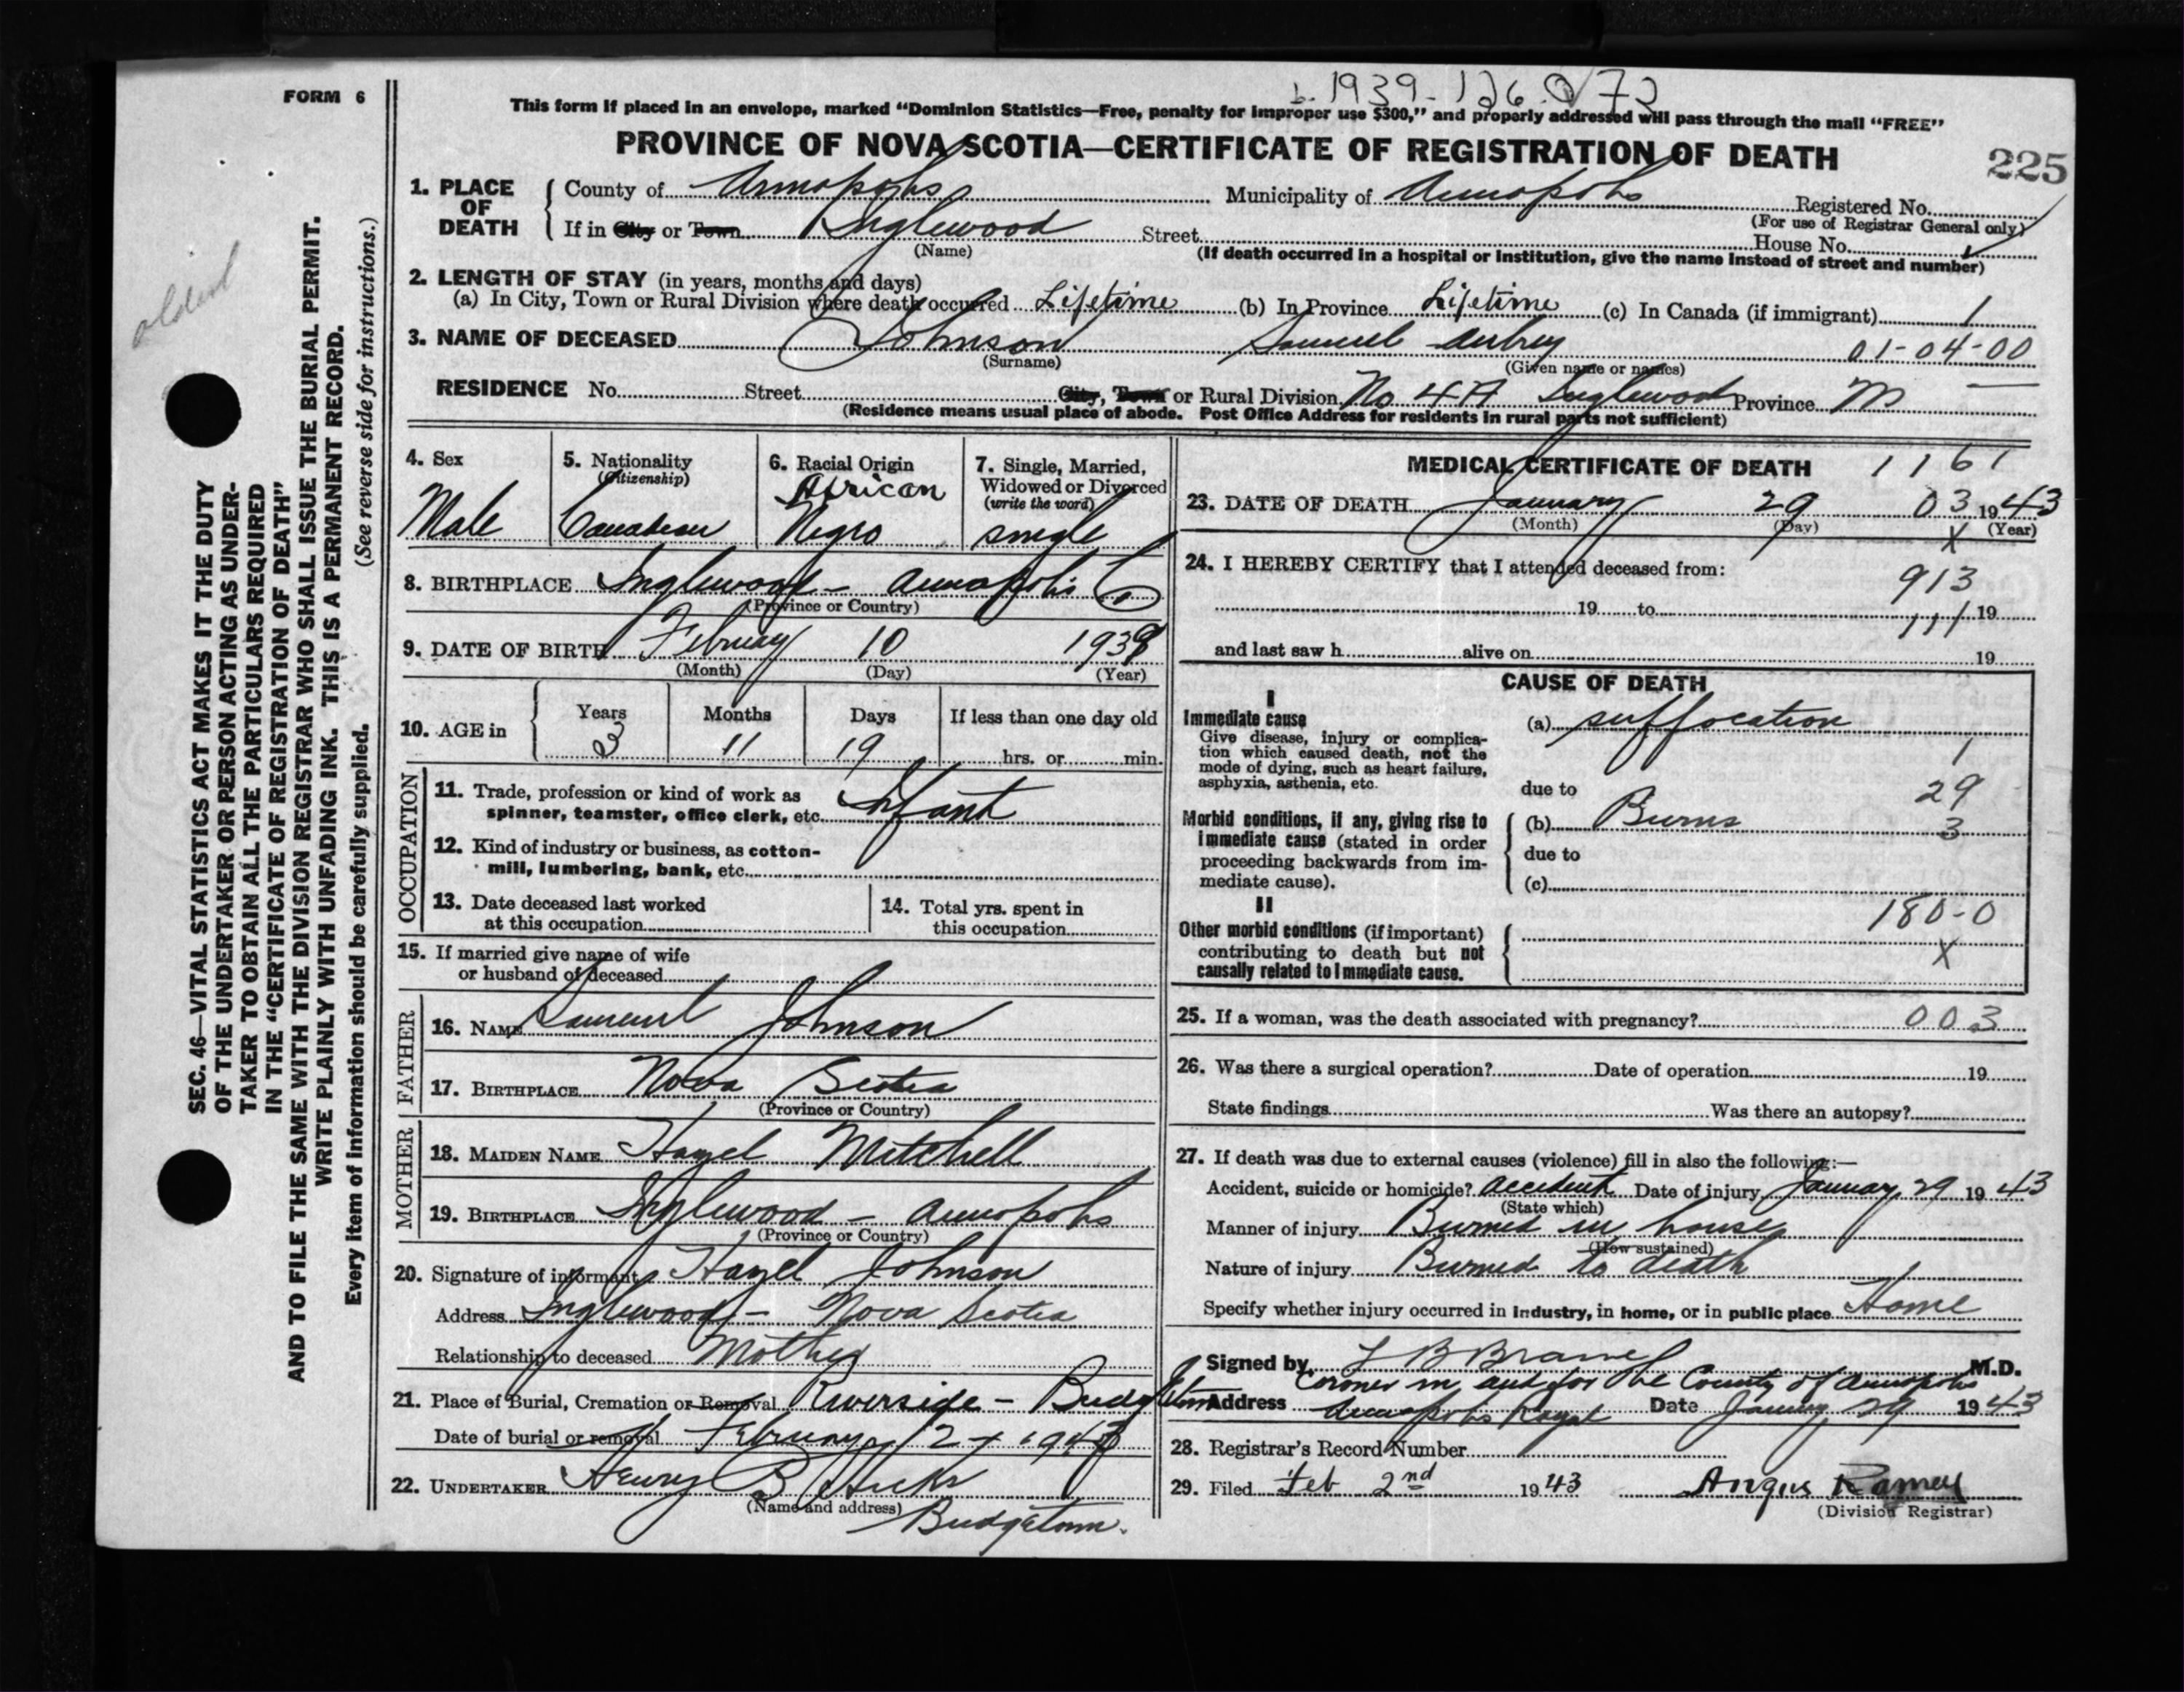 b. 1939-126.0/72
FORM 6
This form if placed in an envelope, marked "Dominion Statistics—Free, penalty for improper use $300," and properly addressed will pass through the mail "FREE"
PROVINCE OF NOVA SCOTIA—CERTIFICATE OF REGISTRATION OF DEATH
225
1. PLACE OF DEATH
County of Annapolis Municipality of Annapolis Registered No.
(For use of Registrar General only)
If in City or Town Inglewood Street House No.
(Name) (If death occurred in a hospital or institution, give the name instead of street and number)
2. LENGTH OF STAY (in years, months and days)
(a) In City, Town or Rural Division where death occurred Lifetime (b) In Province Lifetime (c) In Canada (if immigrant) 1
3. NAME OF DECEASED Johnson Samuel Aubrey 01-04-00
(Surname) (Given name or names)
RESIDENCE No. Street City, Town or Rural Division No 4A Inglewood Province
(Residence means usual place of abode. Post Office Address for residents in rural parts not sufficient)
4. Sex
Male
5. Nationality
(Citizenship)
Canadian
6. Racial Origin
African
Negro
7. Single, Married,
Widowed or Divorced
(write the word)
single
8. BIRTHPLACE Inglewood - Annapolis Co.
(Province or Country)
9. DATE OF BIRTH February 10 1939
(Month) (Day) (Year)
10. AGE in
Years Months Days If less than one day old
3 11 19 hrs. or min.
OCCUPATION
11. Trade, profession or kind of work as
spinner, teamster, office clerk, etc. Infant
12. Kind of industry or business, as cotton-
mill, lumbering, bank, etc.
13. Date deceased last worked
at this occupation
14. Total yrs. spent in
this occupation
15. If married give name of wife
or husband of deceased
FATHER
16. NAME Samuel Johnson
17. BIRTHPLACE Nova Scotia
(Province or Country)
MOTHER
18. MAIDEN NAME Hazel Mitchell
19. BIRTHPLACE Inglewood - Annapolis
(Province or Country)
20. Signature of informant Hazel Johnson
Address Inglewood - Nova Scotia
Relationship to deceased Mother
21. Place of Burial, Cremation or Removal Riverside - Bridgetown
Date of burial or removal February 2 1943
22. UNDERTAKER Henry B Hicks
(Name and address)
Bridgetown.
MEDICAL CERTIFICATE OF DEATH 1161
23. DATE OF DEATH January 29 03 1943
(Month) (Day) (Year)
X
24. I HEREBY CERTIFY that I attended deceased from:
913
19 to 19
111
and last saw h alive on 19
CAUSE OF DEATH
I
Immediate cause
Give disease, injury or complica-
tion which caused death, not the
mode of dying, such as heart failure,
asphyxia, asthenia, etc.
(a) suffocation
1
due to
29
Morbid conditions, if any, giving rise to
immediate cause (stated in order
proceeding backwards from im-
mediate cause).
(b) Burns 3
due to
(c)
180-0
II
Other morbid conditions (if important)
contributing to death but not
causally related to immediate cause.
X
25. If a woman, was the death associated with pregnancy? 003
26. Was there a surgical operation? Date of operation 19
State findings Was there an autopsy?
27. If death was due to external causes (violence) fill in also the following:—
Accident, suicide or homicide? accident Date of injury January 29 1943
(State which)
Manner of injury Burned in house
(How sustained)
Nature of injury Burned to death
Specify whether injury occurred in industry, in home, or in public place Home
Signed by L B Braine M.D.
Coroner in and for the County of Annapolis
Address Annapolis Royal Date January 29 1943
28. Registrar's Record Number
29. Filed Feb 2nd 1943 Angus Ramey
(Division Registrar)
oldest
SEC. 46—VITAL STATISTICS ACT MAKES IT THE DUTY
OF THE UNDERTAKER OR PERSON ACTING AS UNDER-
TAKER TO OBTAIN ALL THE PARTICULARS REQUIRED
IN THE "CERTIFICATE OF REGISTRATION OF DEATH"
AND TO FILE THE SAME WITH THE DIVISION REGISTRAR WHO SHALL ISSUE THE BURIAL PERMIT.
WRITE PLAINLY WITH UNFADING INK. THIS IS A PERMANENT RECORD.
Every item of information should be carefully supplied. (See reverse side for instructions.)